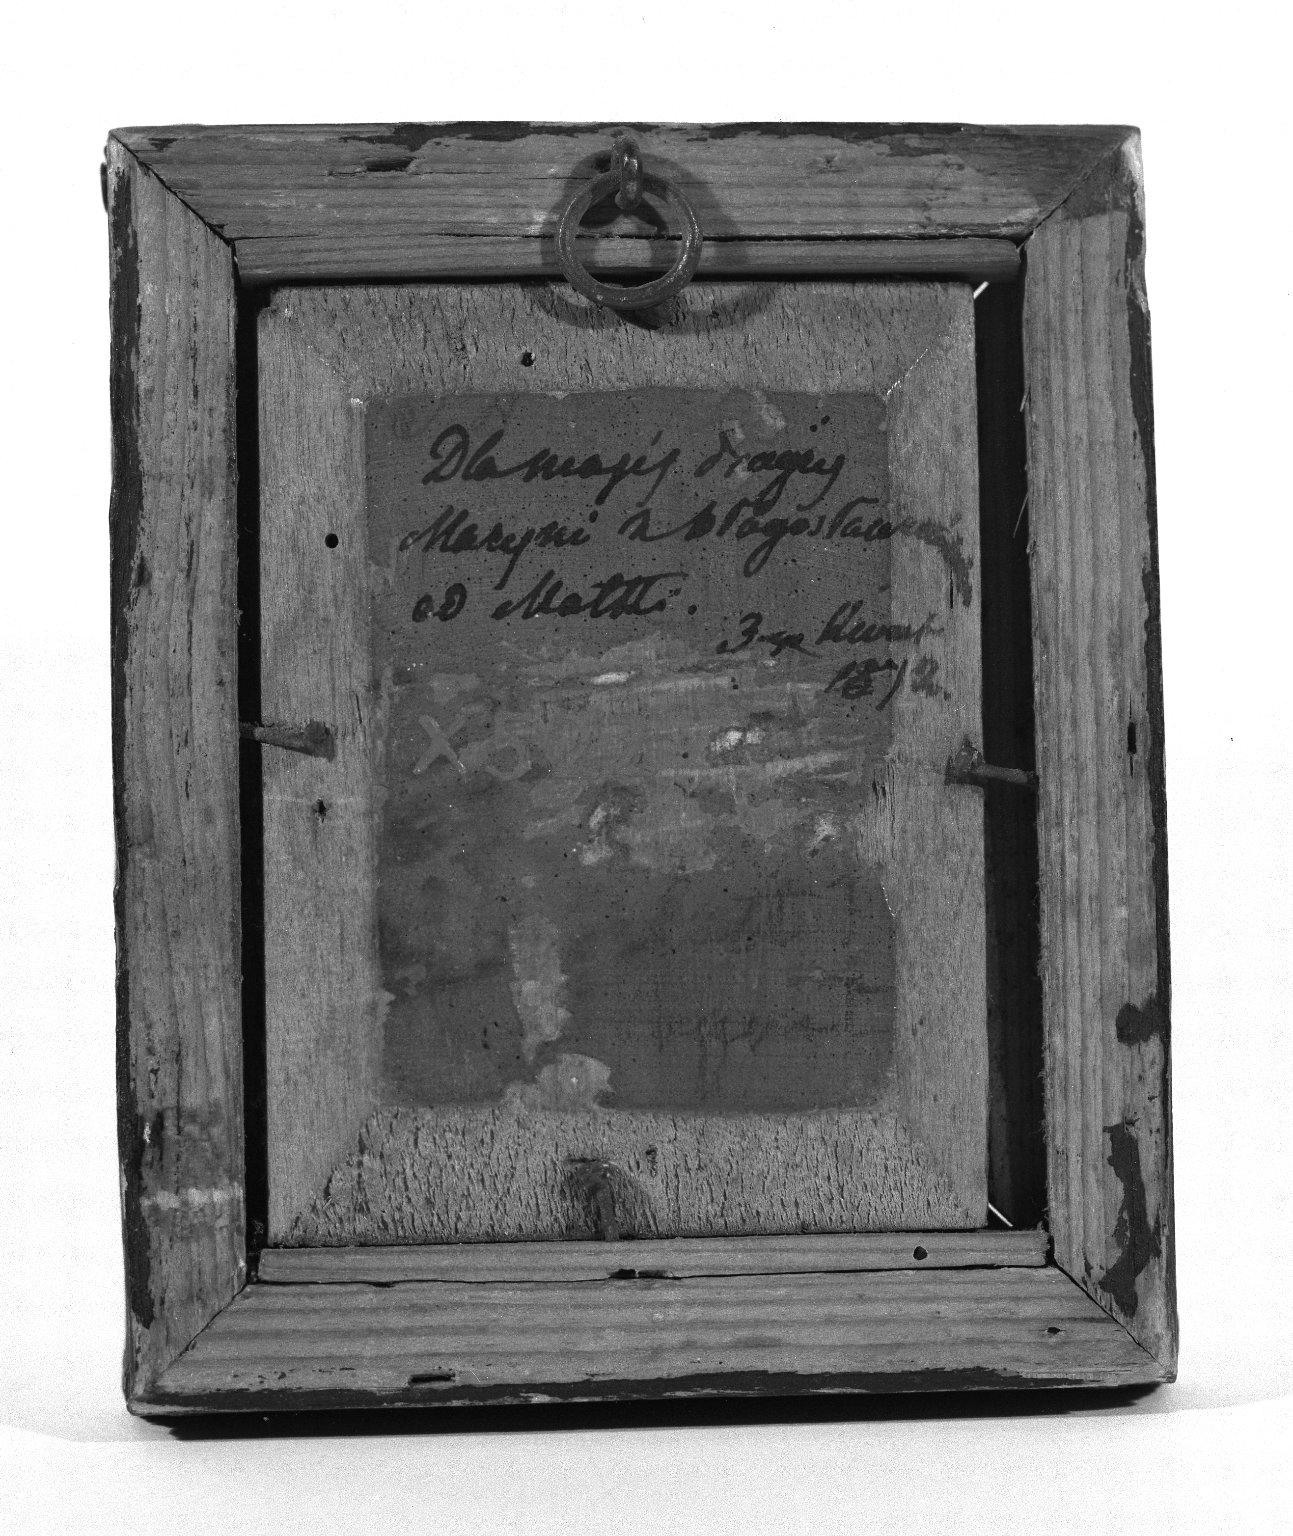 Dla mojéj drogiéj
Maryni z błogosławień
od Matki.
3-go Kwiet
1872.
X5